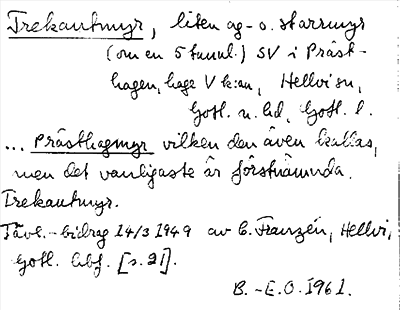 Trekantmyr, liten ag- o. starrmyr
(om en 5 tunnl.) SV i Präst-
hagen, hage V k:an, Hellvi sn,
Gotl. n. hd, Gotl. l.
... Prästhagmyr vilken den även kallas,
men det vanligaste är förstnämnda.
Trekantmyr.
Tävl.-bidrag 14/3 1949 av C. Franzén, Hellvi,
Gotl. [s. 21].
B.-E.O. 1961.